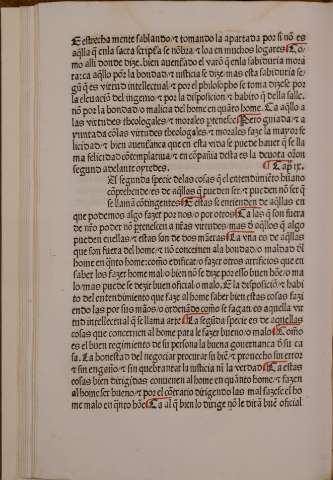 E estrecha mente fablando ⁊ tomando la apartada por si nõ es
aq̃lla q̃ enla sacta scriptˢa se nõbra ⁊ loa en muchos logares Co
mo alli donde dize. bien auenẽado el varõ q̃ enla sabiduria mora
ra: ca aq̃llo põr la bondad ⁊ iusticia se dize mas esta sabiduria se
gũ q̃ es virtud intellectual ⁊ por el philosopho se toma dizese por
la eleuaciõ del ingenio ⁊ por la disposiciõ ⁊ habito q̃ della salle.
nõ por la bondad o malicia del home en quãto home. Ca aq̃llo a
las virtudes theologales ⁊ morales ꝑtenesce Pero guiada ⁊ a
yuntada cõlas virtudes theologales ⁊ morales faze la mayor fe
licidad ⁊ bien auenẽança que en esta vida se puede hauer q̃ se lla
ma felicidad cõtemplatiua ⁊ en cõpañia desta es la deuota oĩon
segund adelante oyredes. Cap. ix.
El segunda specie delas cosas que el entendimiẽto hũano
cõprehende ⁊ es de aq̃llos q̃ pueden ser ⁊ pueden nõ ser q̃
se llamã contingentes E estas se entienden de aq̃llas en
que podemos algo fazer por nos o por otros Ca las q̃ son fuera
de nr̃o poder nõ ꝑtenescen a nr̃as virtudes mas d̃ aq̃llos q̃ algo
pueden en ellas ⁊ estas son de dos maẽras La vna es de aq̃llas
que son fuera del home ⁊ nõ concernen ala bondad o maldad d̃l
home en q̃nto home: como edificar o fazer otros artificios que en
saber los fazer home mal o bien nõ se dize por esso buen hõe o ma
lo mas puede se dezir buen oficial o malo. E la disposiciõ ⁊ habi
to del entendimiento que faze al home saber bien estas cosas fazi
endo las por sus mãos o ordenãdo como se fagan es aquella vir
tud intellectual q̃ se llama arte La segũda specie es de aquellas
cosas que conciernen al home para le fazer bueno o malo Como
es el buen regimiento de su persona la buena gouernança d̃ su ca
sa. La honesta del negociar procurar su biẽ ⁊ prouecho sin error
⁊ sin engaño ⁊ sin quebrantar la iusticia nĩ la verdad Ca estas
cosas bien dirigidas conuienen al home en quãnto home ⁊ fazen
al home ser bueno ⁊ por el cõtrario dirigendo las mal fazese el ho
me malo en q̃nto hõe Ca al q̃ bien lo dirige nõ le dirã buẽ oficial